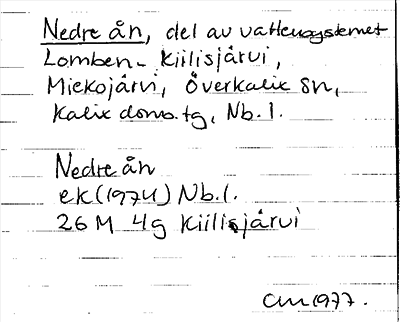 Nedre ån, del av vattensystemet
Lomben - Kiilisjärvi,
Miekojärvi, Överkalix sn,
Kalix doms.tg, Nb.l.
Nedre ån
ek (1974) Nb.l.
26 M 4g Kiilisjärvi
CM 1977.